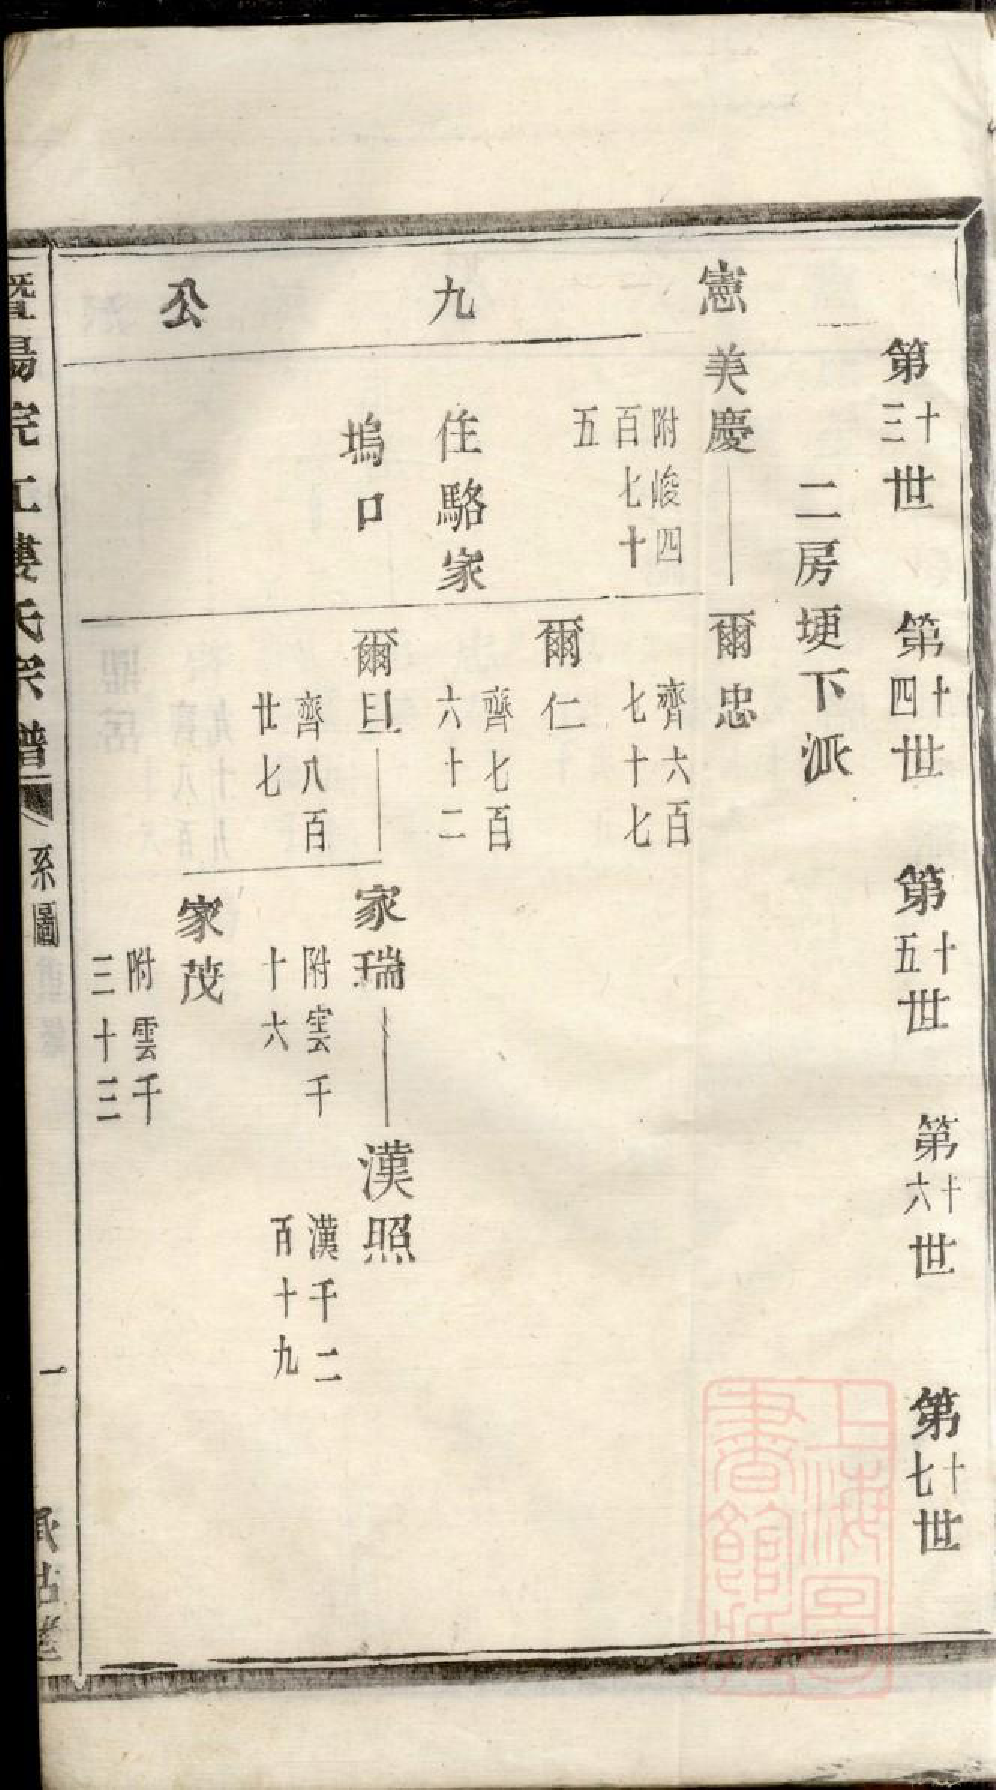 第十三世
第十四世
第十五世
第十六世
第十七世
二房埂下派
憲九公
美慶
附峻四
百七十
五
住駱家
塢口
爾忠
齊六百
七十七
爾仁
齊七百
六十二
爾旦
齊八百
廿七
家瑞
附雲千
十六
漢照
漢千二
百十九
家茂
附雲千
三十三
暨陽浣江婁氏宗譜
系圖
一
上海圖書館藏